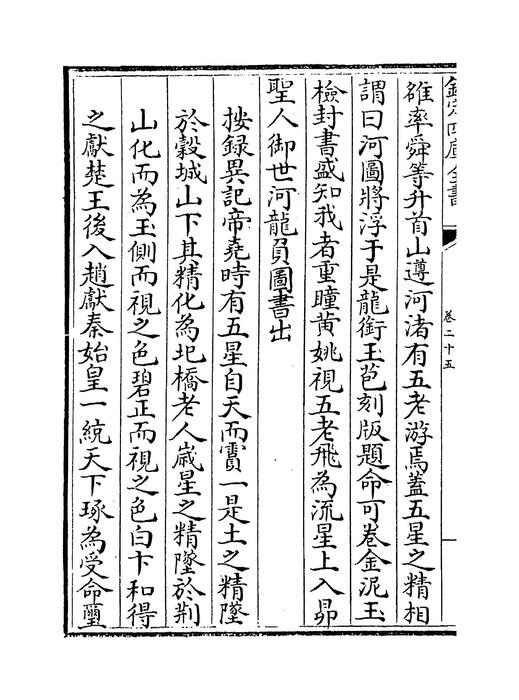 欽定四庫全書
卷二十五
雒率舜等升首山遵河渚有五老游焉蓋五星之精相
謂曰河圖將浮于是龍銜玉苞刻版題命可卷金泥玉
檢封書盛知我者重瞳黄姚視五老飛為流星上入昴
聖人御世河龍負圖書出
按録異記帝堯時有五星自天而霣一是土之精墜
於榖城山下其精化為圯橋老人嵗星之精墜於荆
山化而為玉側而視之色碧正而視之色白卞和得
之獻楚王後入趙獻秦始皇一統天下琢為受命璽